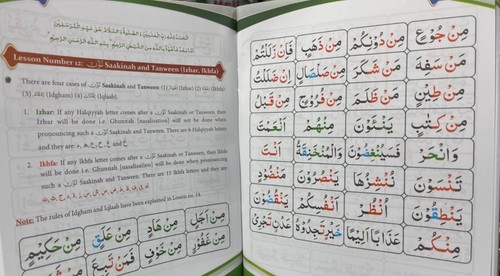 اَلْحَمْدُ لِلّٰهِ رَبِّ الْعٰلَمِيْنَ وَ الصَّلٰوةُ وَالسَّلَامُ عَلٰى سَيِّدِ الْمُرْسَلِيْنَ
اَمَّا بَعْدُ فَاَعُوْذُ بِاللّٰهِ مِنَ الشَّيْطٰنِ الرَّجِيْمِ بِسْمِ اللّٰهِ الرَّحْمٰنِ الرَّحِيْمِ
Lesson Number 12: نُوْن Saakinah and Tanween (Izhar, Ikhfa)
There are four cases of نُوْن Saakinah and Tanween (1) (Izhar) (2) (Ikhfa)
(3) (Idgham) (4) (Iqlaab)
1. Izhar: If any Halqiyyah letter comes after a نُوْن Saakinah or Tanween, then
Izhar will be done i.e. Ghunnah (nasalisation) will not be done when
pronouncing such a نُوْن Saakinah and Tanween. There are 6 Halqiyyah letters
and they are: ء، ه، ع، ح، غ، خ
2. Ikhfa: If any Ikhfa letter comes after a نُوْن Saakinah or Tanween, then Ikhfa
will be done i.e. Ghunnah (nasalisation) will be done when pronouncing
such a نُوْن Saakinah and Tanween. There are 15 Ikhfa letters and they are
Note: The rules of Idgham and Iqlaab have been explained in Lesson no. 14.
مِنْ اَجَلٍ مِنْ هَادٍ مِنْ عَلَقٍ مِنْ حَكِيْمٍ
مِنْ غَفُوْرٍ مِنْ خَوْفٍ فَمَنْ تَبِعَ
مِنْ جُوْعٍ مِنْ دُوْنِكُمْ مِنْ ذَهَبٍ فَاِنْ زَلَلْتُمْ
مِنْ سَفَهٍ مَنْ شَكَرَ مِنْ صَلْصَالٍ اِنْ ضَلَلْتُ
مِنْ طِيْنٍ مَنْ ظَلَمَ مِنْ فُرُوْجٍ مِنْ قَبْلُ
مِنْ كِتٰبٍ يَنْئَوْنَ مِنْهُمْ اَنْعَمْتَ
وَانْحَرْ فَسَيُنْغِضُوْنَ وَالْمُنْخَنِقَةُ اَنْتَ
تَنْسَوْنَ نُنْشِزُهَا يَنْصُرُوْنَ مَنْضُوْدٍ
يَنْطِقُوْنَ اُنْظُرْ اَنْفُسَكُمْ يَنْقُضُوْنَ
مِنْكُمْ عَذَابًا اَلِيْمًا خَيْرٍ تَجِدُوْهُ عَدْنٍ تَجْرِيْ